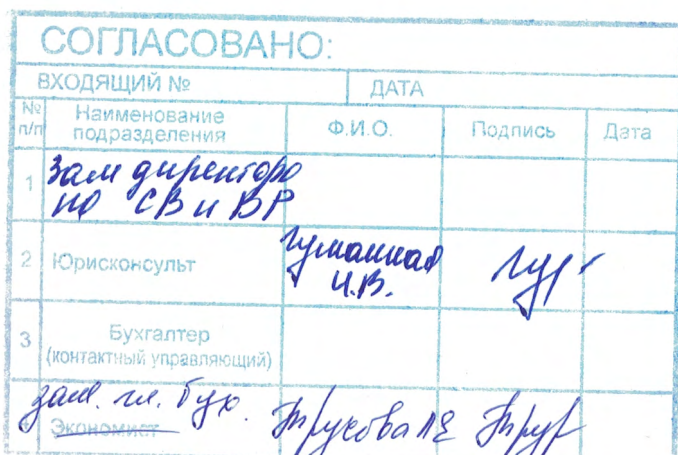 СОГЛАСОВАНО:
ВХОДЯЩИЙ № ДАТА
№ п/п Наименование подразделения Ф.И.О. Подпись Дата
1 Зам директора
по СВ и ВР
2 Юрисконсульт
И.В.
3 Бухгалтер
(контактный управляющий)
зам. гл. бух.
Экономист